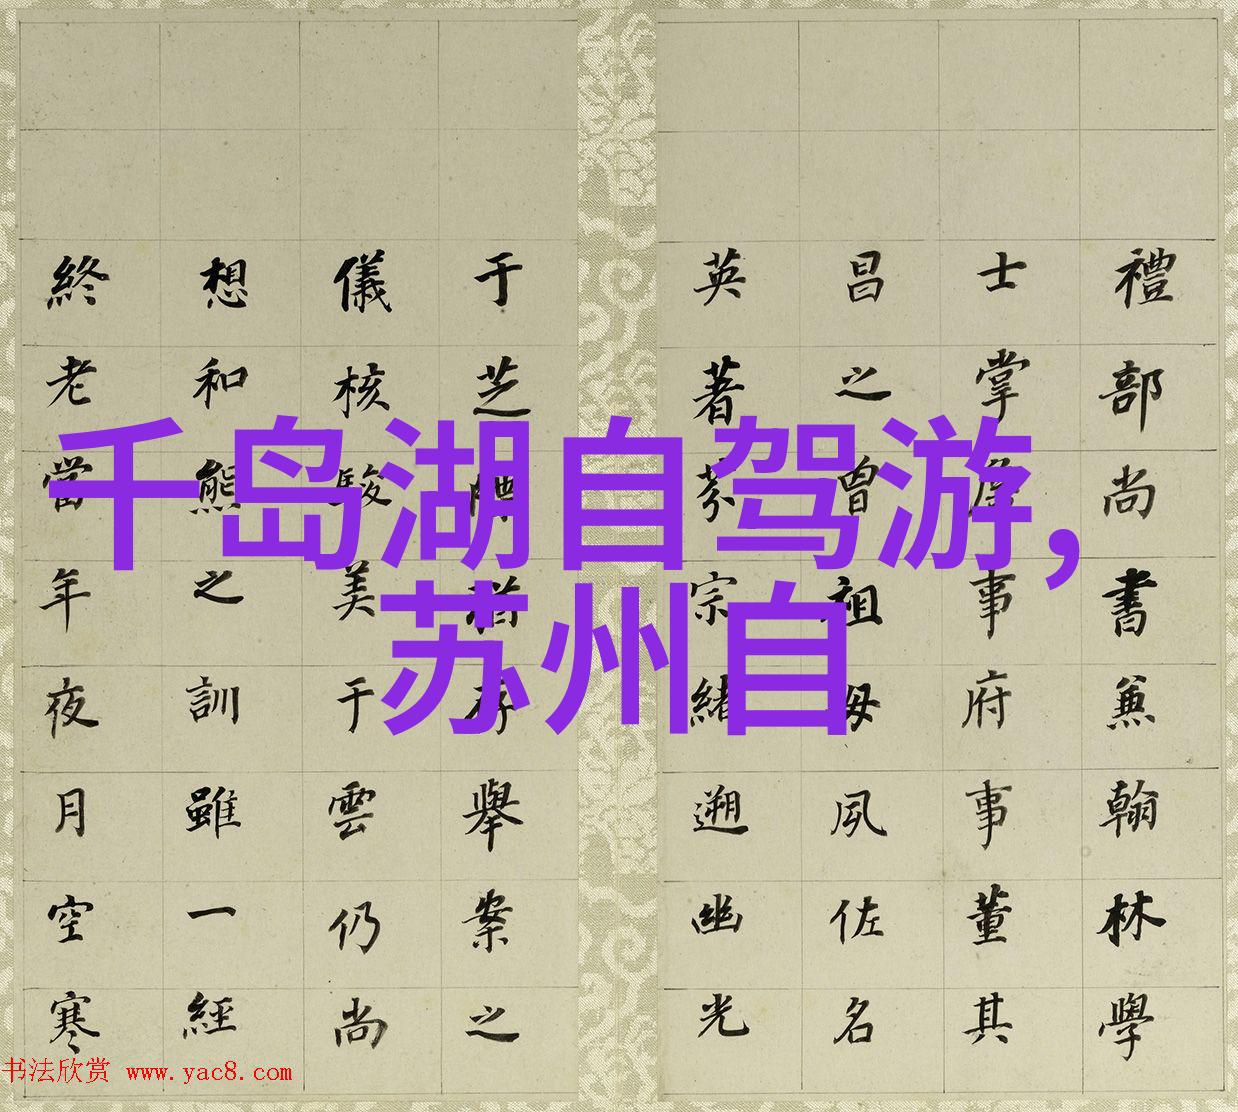 千岛湖自驾游,
苏州自
禮部尚書兼翰林學
士掌詹事府事董其
昌之曾祖母夙佐名
英著芬宗緒遡幽光
于芝存舉案之
儀核駿美于雲仍尚
想和熊之訓雖一經
終老當年夜月空寒
书法欣赏 www.yac8.com